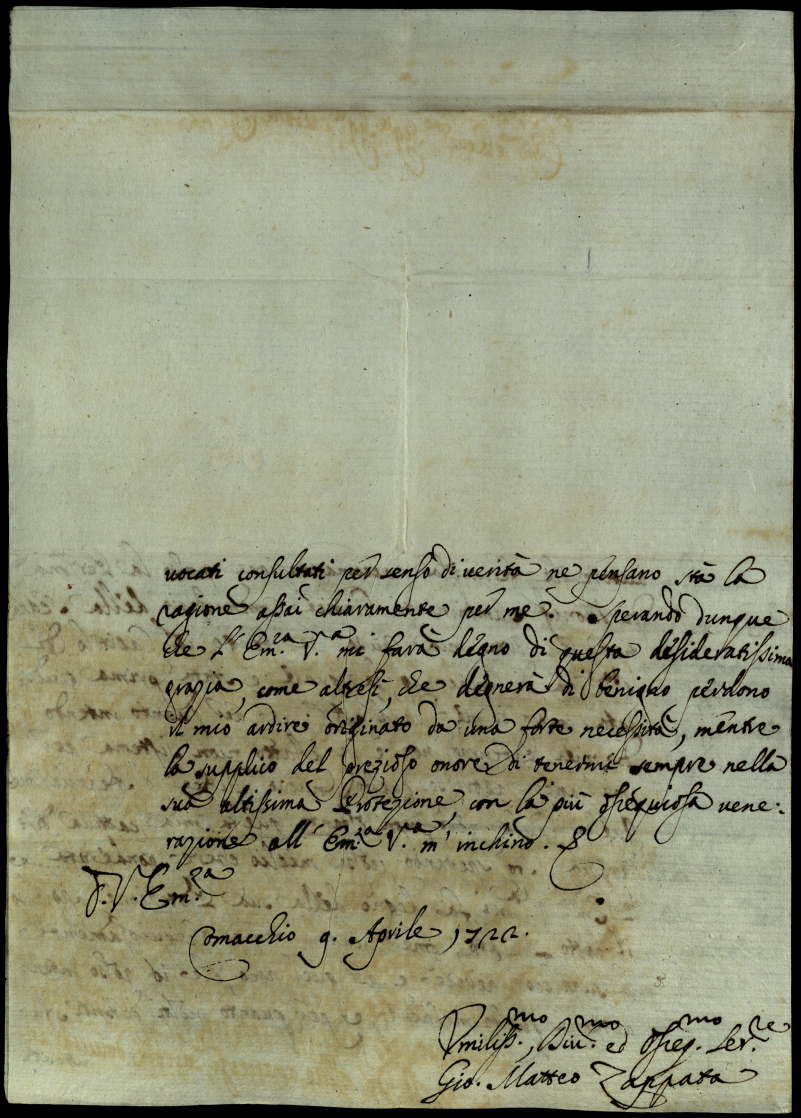 vocati consultati per senso di verità ne pensano stà la
ragione assai chiaramente per me. Sperando dunque
che L'Em.ra V.a mi farà degno di questa desideratissima
grazia, come altresì, che degnerà di benigno perdono
il mio ardire originato da una forte necessità, mentre
la supplico del prezioso onore di tenermi sempre nella
sua altissima Protezione, con la più ossequiosa vene:
razione all'Em.za V.a m'inchino. &
D. V. Em.za
Comacchio 9. Aprile 1722.
Umiliss.mo, Div.mo ed Osseq.mo Ser.re
Gio. Matteo Zappata